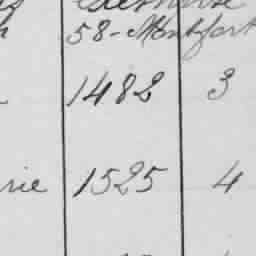 58-Montfort
1482 3
rie 1525 4